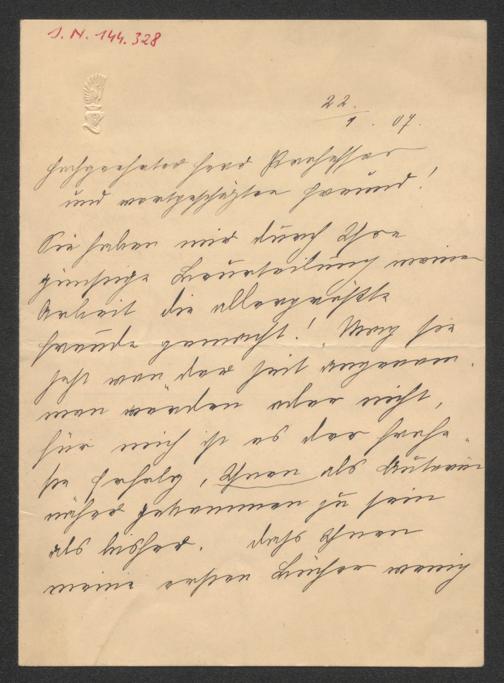 J. N. 144.328
22.
1. 07.
Hochgeehrter Herr Professor
und wertgeschätzter Freund!
Sie haben mir durch Ihre
günstige Beurteilung meiner
Arbeit die allergrößte
Freude gemacht! Mag sie
jetzt von der Zeit angenom-
men werden oder nicht,
für mich ist es der
Erfolg, Ihnen als Autorin
näher gekommen zu sein
als bisher. Daß Ihnen
meine ersten Bücher wenig